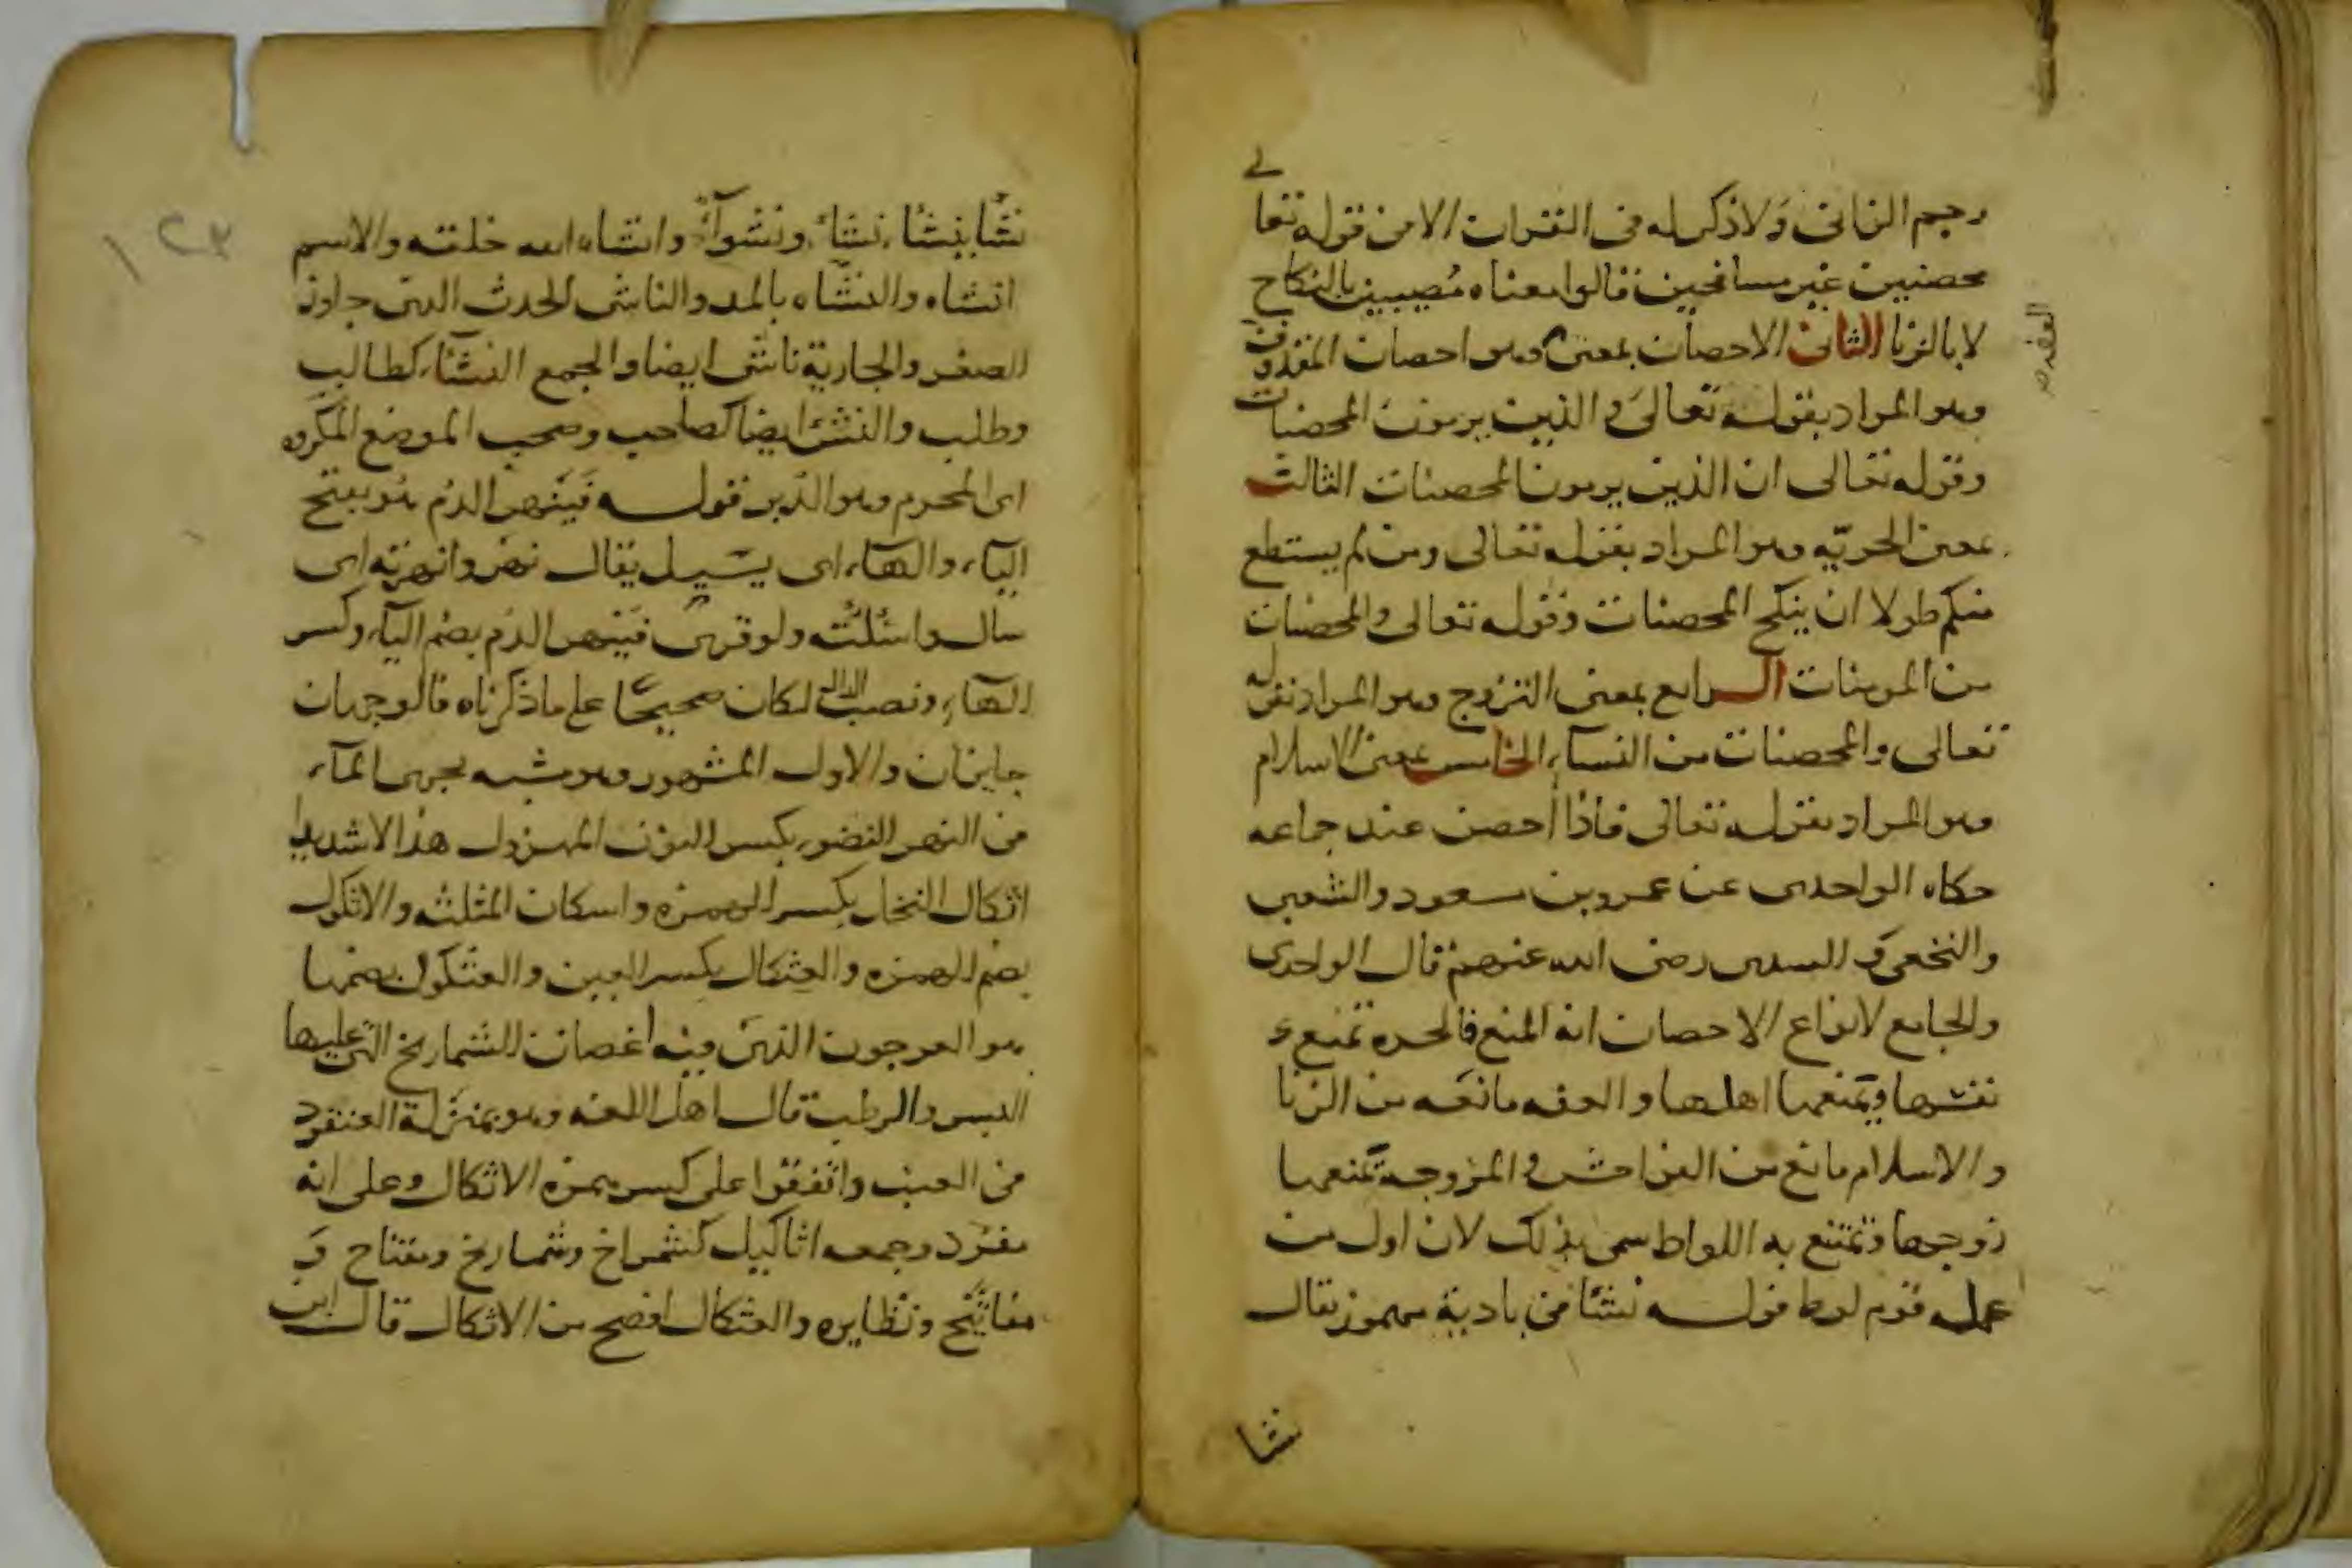 رجم الزانى ولا ذكر له فى القرات الا من قوله تعالى
محصنين غير مسافحين قالوا معناه مصيبين بالنكاح
لا بالزنا الثانى الاحصان بمعنى وهو احصان المقذوف
العفه صح
وهو المراد بقوله تعالى والذين يرمون المحصنات
وقوله تعالى ان الذين يرمون المحصنات الثالث
بمعنى الحريّه وهو المراد بقوله تعالى ومن لم يستطع
منكم طولا ان ينكح المحصنات وقوله تعالى والمحصنات
من المومنات الرابع بمعنى التزوج وهو المراد بقوله
تعالى والمحصنات من النسآء الخامس بمعنى الاسلام
وهو المراد بقوله تعالى فاذا أحصن عند جماعه
حكاه الواحدى عن عمر وبن مسعود والشعبى
والنخعى و السدى رضى الله عنهم قال الواحدى
والجامع لانواع الاحصان انه المنع فالحره تمنع
نفسها ويمنعها اهلها والعفه مانعه من الزنا
والاسلام مانع من الفواحش والمزوجة يمنعها
زوجها وتمتنع به اللواط سمى بذلك لان اول من
عمله قوم لوط قوله نشئا فى بادية مهموز يقال
نشا
١٢٣
نشأ ينشأ نشاء ونشوآء وانشاه الله خلقه والاسم
انشاه والنشاه بالمد والناشى الحدث الذى جاوز
الصغر والجارية ناشى ايضا والجمع النشآء كطالب
وطلب والنشئ ايضا كصاحب وصحب الموضع المكروه
اى المحرم وهو الدبر قوله فينهر الدم هو بفتح
اليآء والهآء اى يسيل يقال نهر وانهرته اى
سال واسلته ولو قرى فينهر الدم بضم اليآء وكسر
الهآء ونصب الدال لكان صحيحا على ما ذكرناه فالوجهان
جايزان والاول المشهور وهو شبه بجرى المآء
فى النهر النضو بكسر النون المهزول هذا الا شديدا
اثكال النخل بكسر الهمزه واسكان المثلثه والاثكول
بضم الهمزه والعثكال بكسر العين والعثكول بضمها
هو العرجون الذى فيه اغصان الشماريخ التى عليها
البسر والرطب قال اهل اللغه وهو بمنزلة العنقود
فى العنب واتفقوا على كسر همزه الاثكال وعلى انه
مفرد وجمعه اثاكيل كشمراخ وشماريخ ومفتاح و
مفاتيح ونظايره والعثكال افصح من الاثكال قال ابن